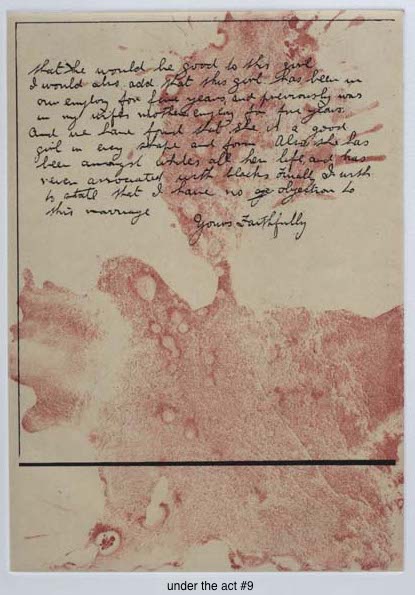 that he would be good to this girl
I would also add that this girl has been in
our employ for five years, and previously was
in my wifes mothers employ for five years.
And we have found that she is a good
girl in every shape and form Also she has
been amongst whites all her life, and has
never associated with blacks Finally I wish
to state that I have no objection to
this marriage
Yours Faithfully
under the act #9